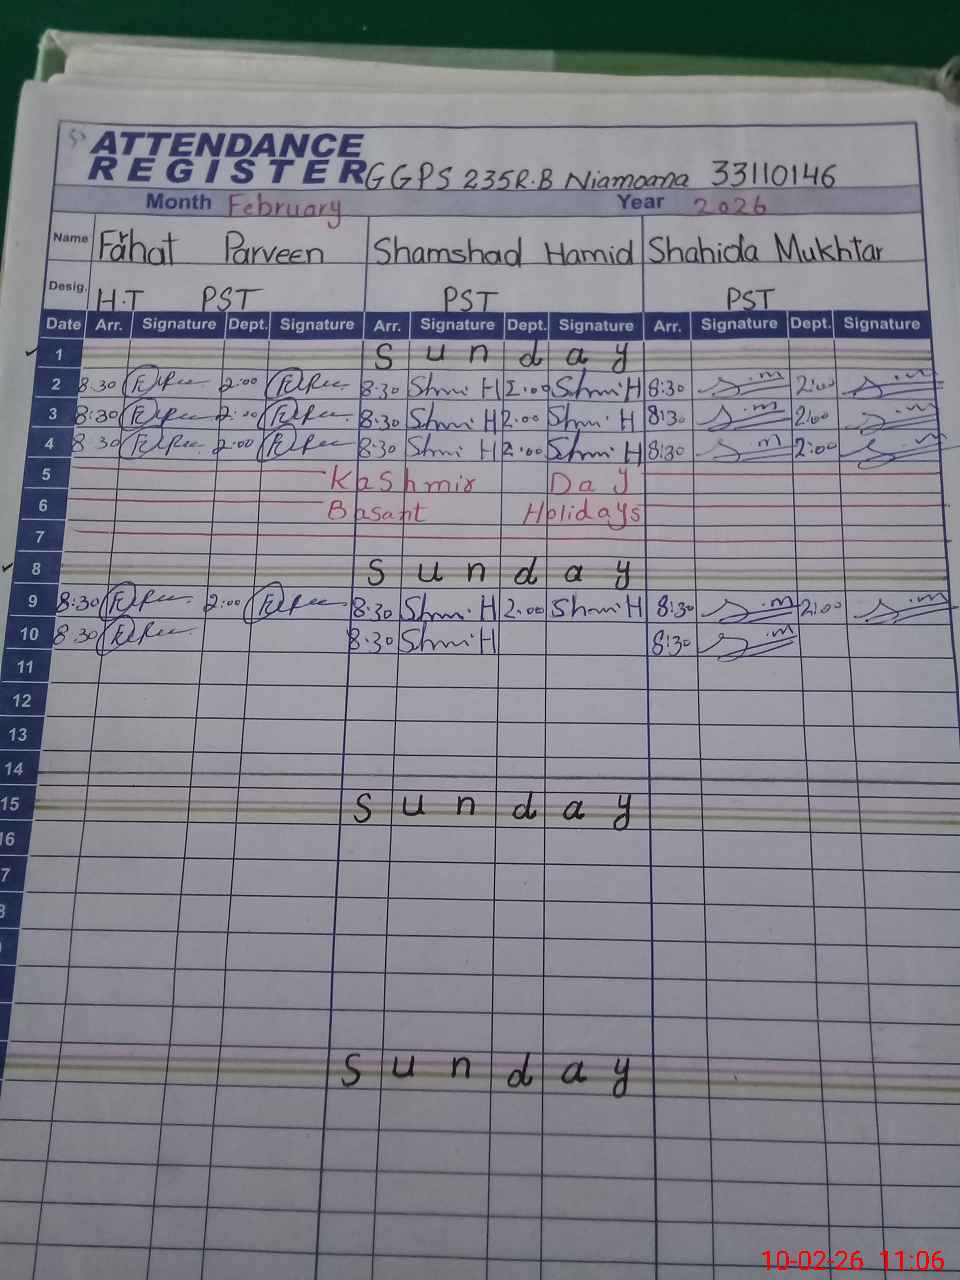 ATTENDANCE
REGISTER GGPS 235R.B Niamoana 33110146
Month February Year 2026
Name Farhat Parveen Shamshad Hamid Shahida Mukhtar
Desig. H.T PST PST PST
Date Arr. Signature Dept. Signature Arr. Signature Dept. Signature Arr. Signature Dept. Signature
1 Sunday
2 8:30 2:00 8:30 Shmi H 2:00 Shmi H 8:30 S.m 2:00 S.m
3 8:30 2:00 8:30 Shmi H 2:00 Shmi H 8:30 S.m 2:00 S.m
4 8:30 2:00 8:30 Shmi H 2:00 Shmi H 8:30 S.m 2:00 S.m
5 Kashmir Day
6 Basant Holidays
7
8 Sunday
9 8:30 2:00 8:30 Shmi H 2:00 Shmi H 8:30 S.m 2:00 S.m
10 8:30 8:30 Shmi H 8:30 S.m
11
12
13
14
15 Sunday
16
7
8
Sunday
10-02-26 11:06